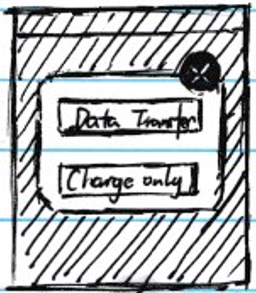 Data Transfer
Charge only